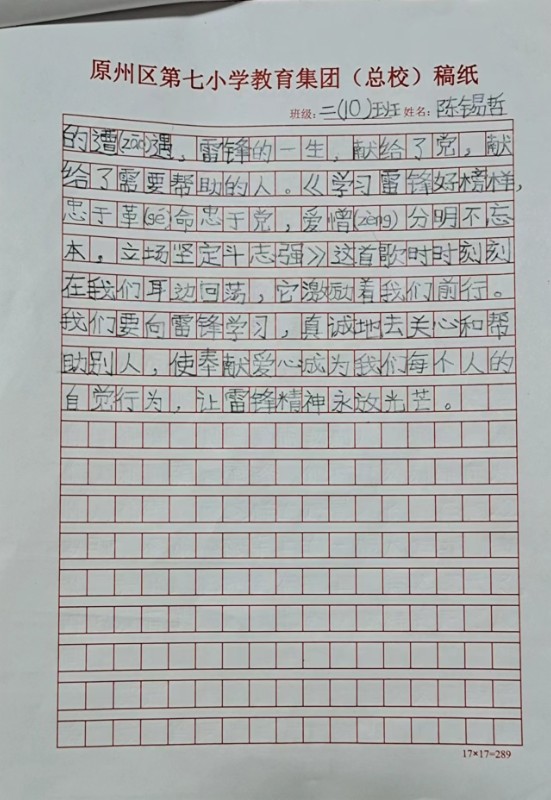 原州区第七小学教育集团（总校）稿纸
班级：二(10)班 姓名：陈锡哲
的遭(zāo)遇，雷锋的一生，献给了党，献
给了需要帮助的人。《学习雷锋好榜样，
忠于革(gé)命忠于党，爱憎(zèng)分明不忘
本，立场坚定斗志强》这首歌时时刻刻
在我们耳边回荡，它激励着我们前行。
我们要向雷锋学习，真诚地去关心和帮
助别人，使奉献爱心诚为我们每个人的
自觉行为，让雷锋精神永放光芒。
17*17=289